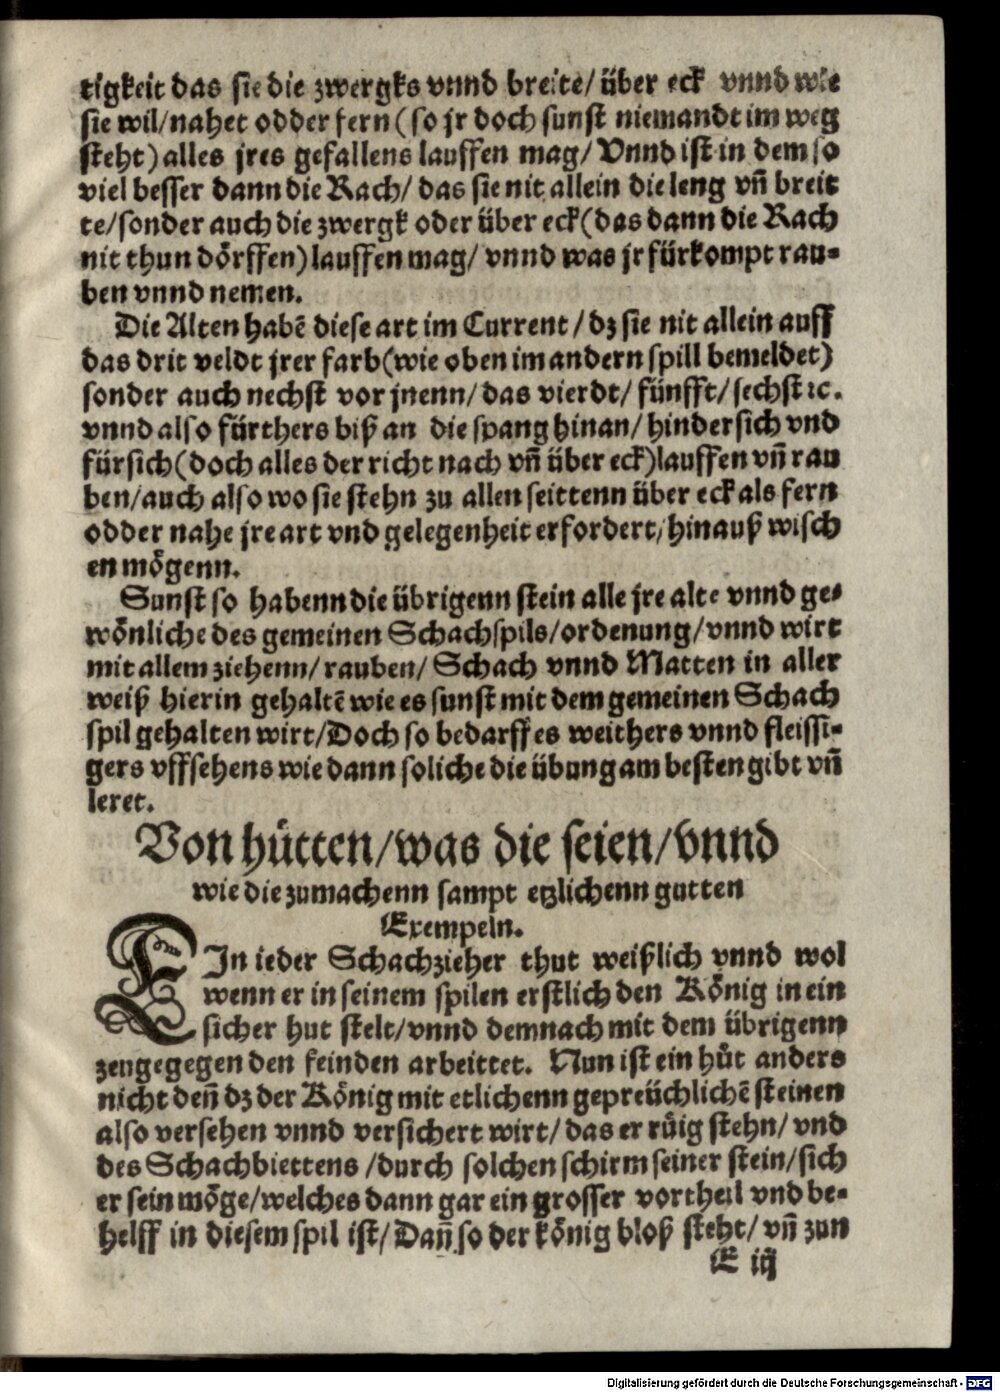 tigkeit das sie die zwergks vnnd breite/ über eck vnnd wie
sie wil/nahet odder fern (so jr doch sunst niemandt im weg
steht) alles jres gefallens lauffen mag/ Vnnd ist in dem so
viel besser dann die Rach/ das sie nit allein die leng vn̄ breit
te/sonder auch die zwergk oder über eck (das dann die Rach
nit thun dörffen) lauffen mag/ vnnd was jr fürkompt rau⸗
ben vnnd nemen.
Die Alten habē diese art im Current / dz sie nit allein auff
das drit veldt jrer farb (wie oben im andern spill bemeldet)
sonder auch nechst vor jnenn/ das vierdt/ fünfft/ sechst ꝛc.
vnnd also fürthers biß an die spang hinan/ hindersich vnd
fürsich (doch alles der richt nach vn̄ über eck) lauffen vn̄ rau
ben/auch also wo sie stehn zu allen seittenn über eck als fern
odder nahe jre art vnd gelegenheit erfordert/ hinauß wisch
en mögenn.
Sunst so habenn die übrigenn stein alle jre alte vnnd ge⸗
wönliche des gemeinen Schachspils/ordenung/vnnd wirt
mit allem ziehenn/ rauben/ Schach vnnd Matten in aller
weiß hierin gehaltē wie es sunst mit dem gemeinen Schach
spil gehalten wirt/Doch so bedarff es weithers vnnd fleissi⸗
gers vffsehens wie dann soliche die übung am besten gibt vn̄
leret.
Von hütten/was die seien/vnnd
wie die zumachenn sampt etzlichenn gutten
Exempeln.
EIn ieder Schachzieher thut weißlich vnnd wol
wenn er in seinem spilen erstlich den König in ein
sicher hut stelt/vnnd demnach mit dem übrigenn
zeug gegen den feinden arbeittet. Nun ist ein hůt anders
nicht den̄ dz der König mit etlichenn gepreüchlichē steinen
also versehen vnnd versichert wirt/ das er růig stehn/ vnd
des Schachbiettens /durch solchen schirm seiner stein/sich
er sein möge/welches dann gar ein grosser vortheil vnd be⸗
helff in diesem spil ist/ Dan̄ so der könig bloß steht/ vn̄ zun
E iij
Digitalisierung gefördert durch die Deutsche Forschungsgemeinschaft - DFG